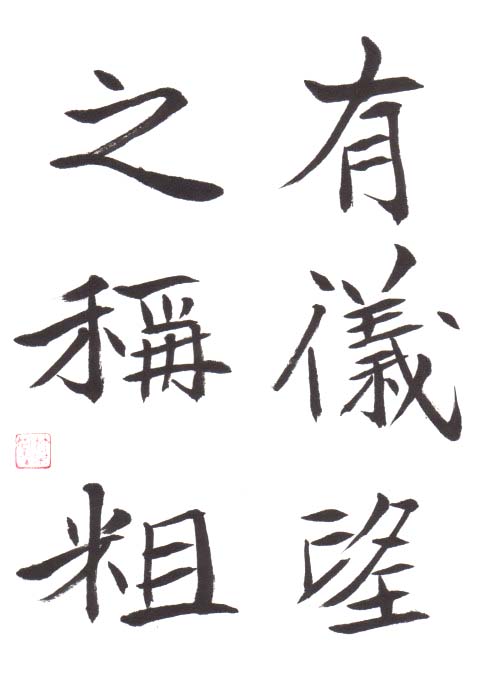 有儀望
之稱粗